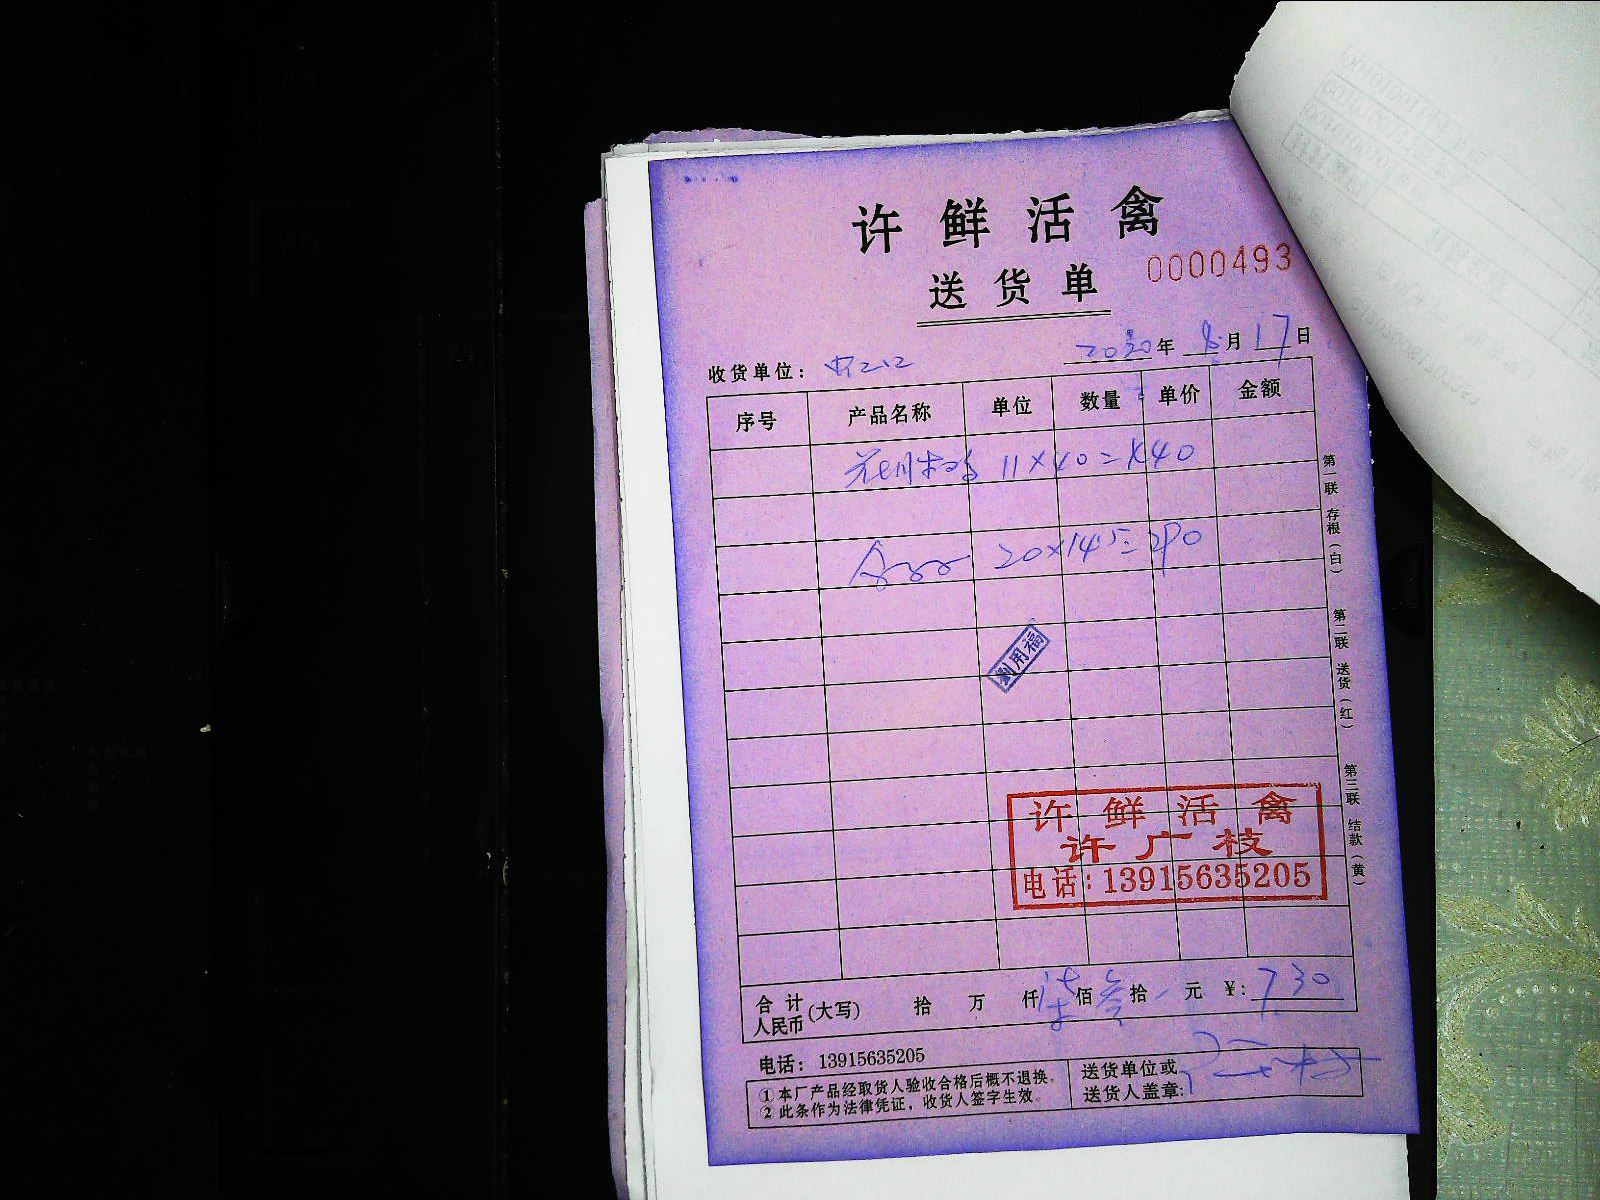 许鲜活禽
送货单
0000493
2020年 8月17日
收货单位：
序号 产品名称 单位 数量 单价 金额
11×40=440
20×14.5=290
利用福
许鲜活禽
许广枝
电话:13915635205
合计人民币(大写) 拾 万 仟 柒佰 叁拾 元 ¥: 730
电话：13915635205
①本厂产品经取货人验收合格后概不退换。
②此条作为法律凭证，收货人签字生效。
送货单位或
送货人盖章:
第一联 存根（白） 第二联 送货（红） 第三联 结款（黄）